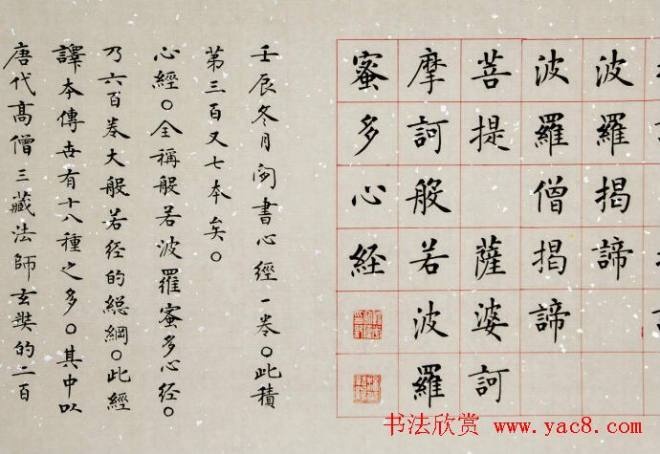 波羅揭諦
波羅僧揭諦
菩提 薩婆訶
摩訶般若波羅
蜜多心経
壬辰冬月書心經一卷。此積
第三百又七本矣。
心經。全稱般若波羅蜜多心经。
乃六百卷大般若经的総綱。此經
譯本傳世有十八種之多。其中以
唐代高僧三藏法師玄奘的二百
书法欣赏 www.yac8.com